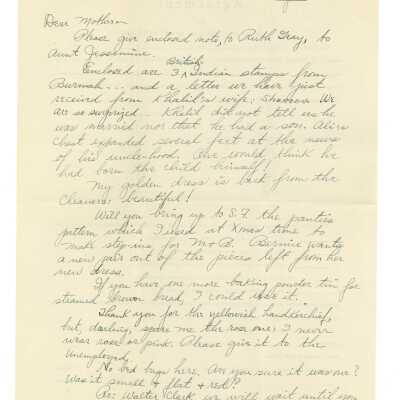 Dear Mother:
Please give enclosed note, to Ruth Gray, to
Aunt Jessamine.
Enclosed are 3 British Indian stamps from
Burmah... and a letter we have just
received from Khalil's wife, We
are so surprized... Khalil did not tell us he
was married nor that he had a son. Ali's
chest expanded several feet at the news
of his unclehood. One would think he
had born the child himself!
My golden dress is back from the
cleaners, beautiful!
Will you bring up to S.F. the panties
pattern which I used at Xmas time to
make step-ins for M & B. Bernice wants
a new pair out of the pieces left from her
new dress.
If you have one more baking powder tin for
steamed brown bread, I could use it.
Thank you for the yellowish handkerchief,
but, darling, spare me the rose one; I never
wear rose or pink. Please give it to the
Unemployed.
No bed bugs here. Are you sure it was one?
Was it small & flat & red??
Walter Clark we will wait until you